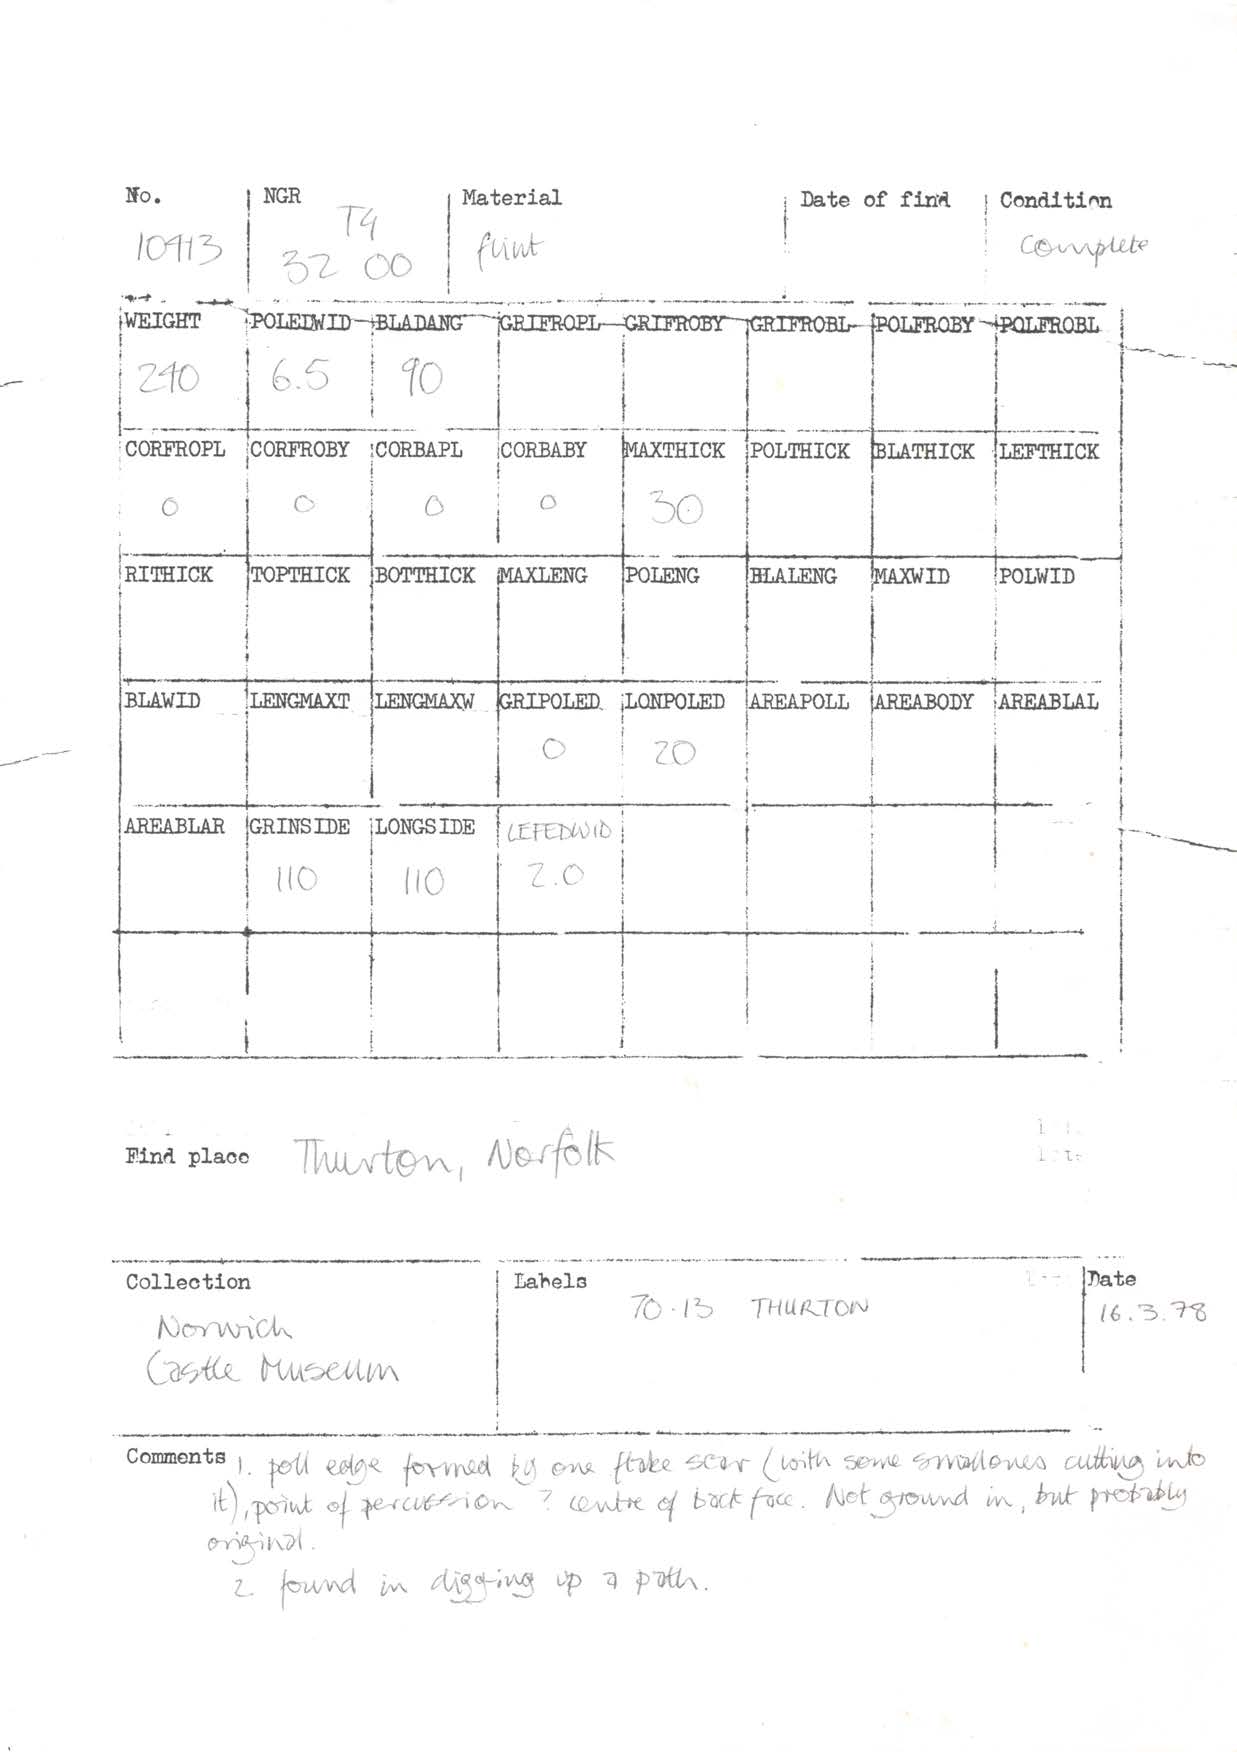 No. NGR Material Date of find Condition
10413 T4 flint complete
32 00
WEIGHT POLEDWID BLADANG GRIFROPL GRIFROBY GRIFROBL POLFROBY POLFROBL
240 6.5 90
CORFROPL CORFROBY CORBAPL CORBABY MAXTHICK POLTHICK BLATHICK LEFTHICK
0 0 0 0 30
RITHICK TOPTHICK BOTTHICK MAXLENG POLENG BLALENG MAXWID POLWID
BLAWID LENGMAXT LENGMAXW GRIPOLED LONPOLED AREAPOLL AREABODY AREABLAL
0 20
AREABLAR GRINSIDE LONGSIDE LEFEDWID
110 110 2.0
Find place Thurton, Norfolk
Collection Labels Date
70.13 THURTON 16.3.78
Norwich
Castle Museum
Comments 1. poll edge formed by one flake scar (with some small ones cutting into
it), point of percussion ? centre of back face. Not ground in, but probably
original.
2. found in digging up a path.